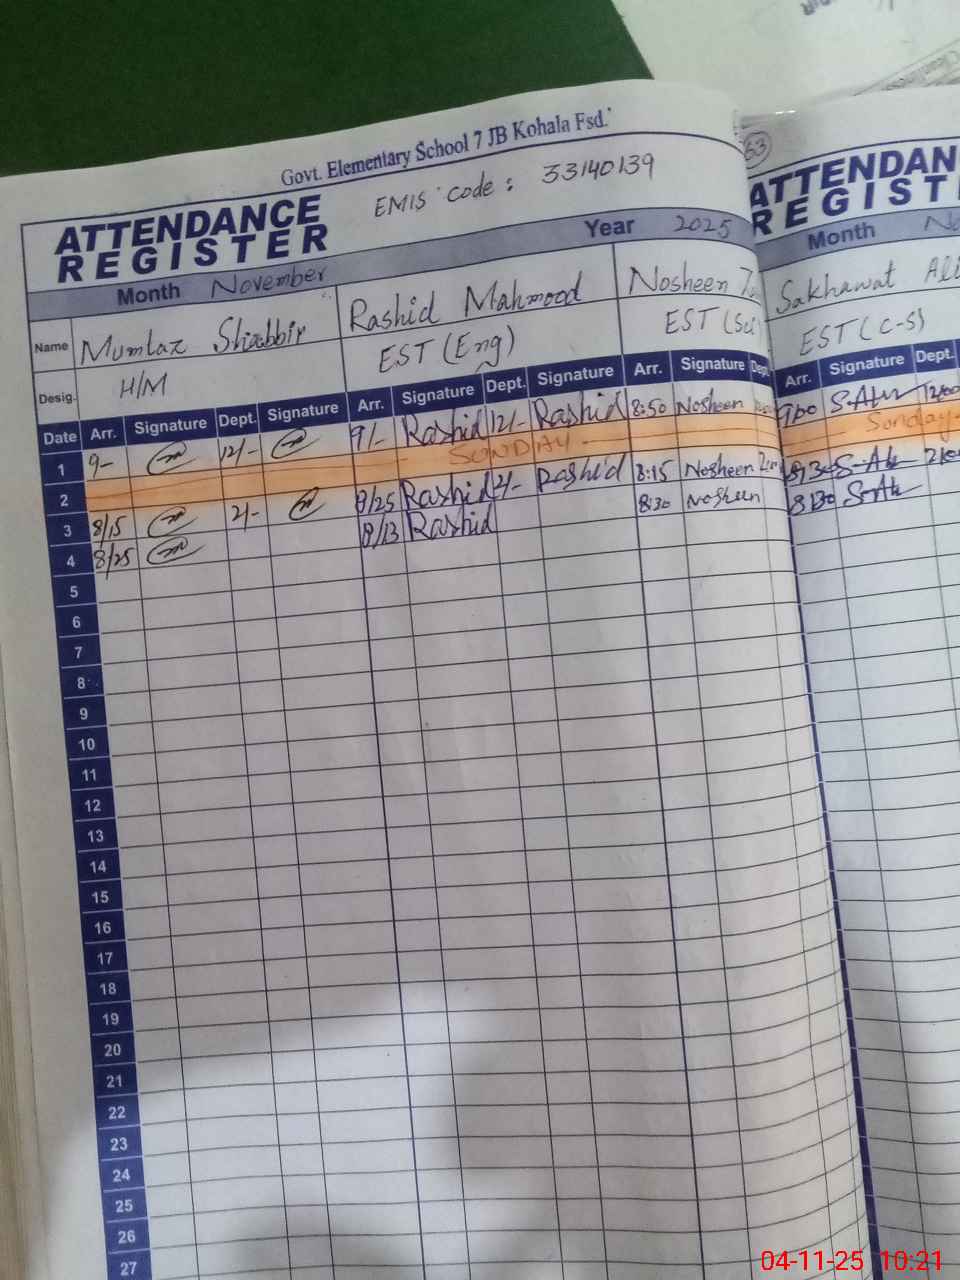 Govt. Elementary School 7 JB Kohala Fsd.
EMIS Code: 33140139
ATTENDANCE REGISTER
Month November Year 2025
Name Mumtaz Shabbir Rashid Mahmood Nosheen
Desig. H/M EST (Eng) EST (Sci)
Date Arr. Signature Dept. Signature Arr. Signature Dept. Signature Arr. Signature Dept.
1 9- 12/- 9/- Rashid 12/- Rashid 8:50 Nosheen
2 SUNDAY
3 8/15 2/- 8/25 Rashid 2/- Rashid 8:15 Nosheen
4 8/25 8/13 Rashid 8:30 Nosheen
5
6
7
8
9
10
11
12
13
14
15
16
17
18
19
20
21
22
23
24
25
26
27
63
ATTENDAN
REGIST
Month No
Sakhawat Ali
EST (C-S)
Arr. Signature Dept.
9:00 1200
Sunday
8:30
04-11-25 10:21